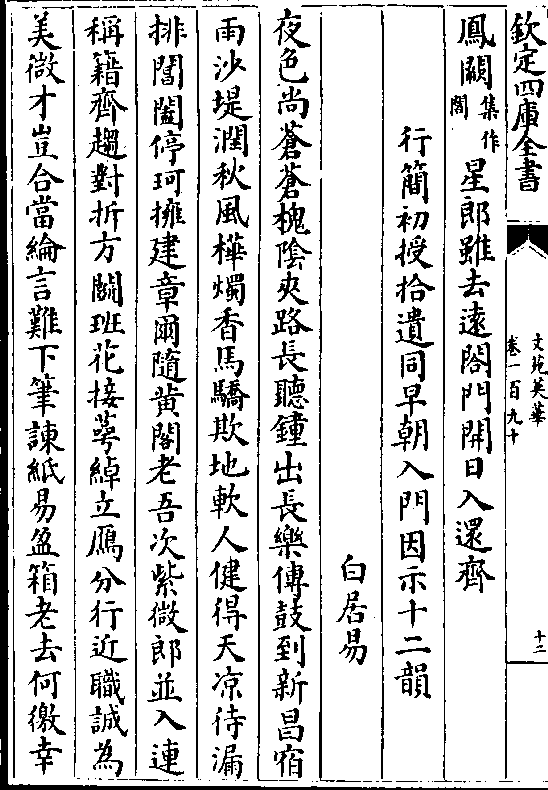 欽定四庫全書
文苑英華
卷一百九十
十二
鳳闕集作閣星郎雖去遠閤門開日入還齊
行簡初授拾遺同早朝入門因示十二韻
白居易
夜色尚蒼蒼槐陰夾路長聽鐘出長樂傳鼓到新昌宿
雨沙堤潤秋風樺燭香馬驕欺地軟人健得天凉待漏
排閶闔停珂擁建章爾隨黄閣老吾次紫微郎並入連
稱籍齊趨對折方鬬班花接萼綽立鴈分行近職誠為
美微才豈合當綸言難下筆諫紙易盈箱老去何徼幸